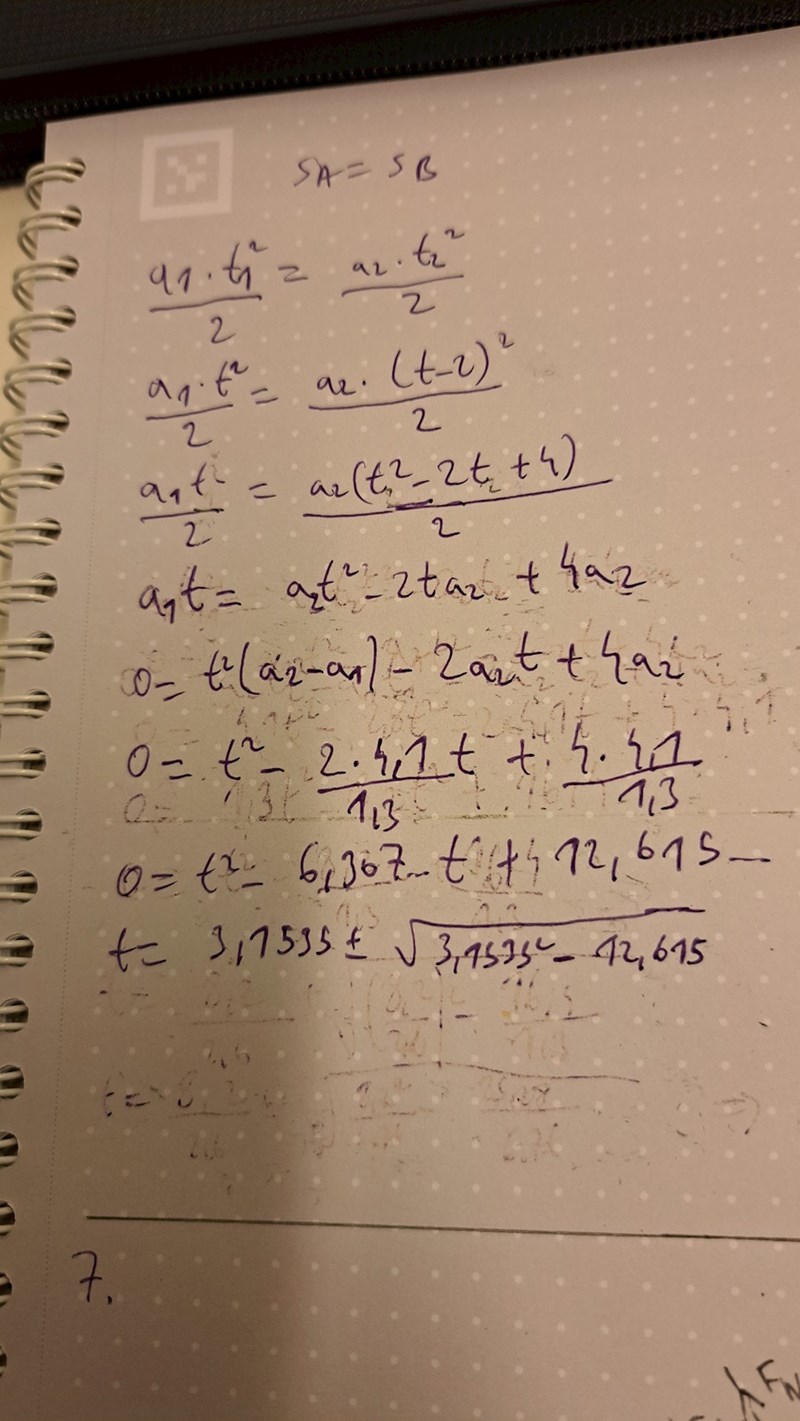 SA = SB
a1 · t1² / 2 = a2 · t2² / 2
a1 · t² / 2 = a2 · (t-2)² / 2
a1 t² / 2 = a2 (t² - 2t + 4) / 2
a1 t = a2 t² - 2 t a2 + 4 a2
0 = t² (a2 - a1) - 2 a2 t + 4 a2
0 = t² - 2 · 4,1 / 1,3 t + 4 · 4,1 / 1,3
0 = t² - 6,307.. t + 12,615...
t = 3,1535 ± √(3,1535² - 12,615)
7.
FN